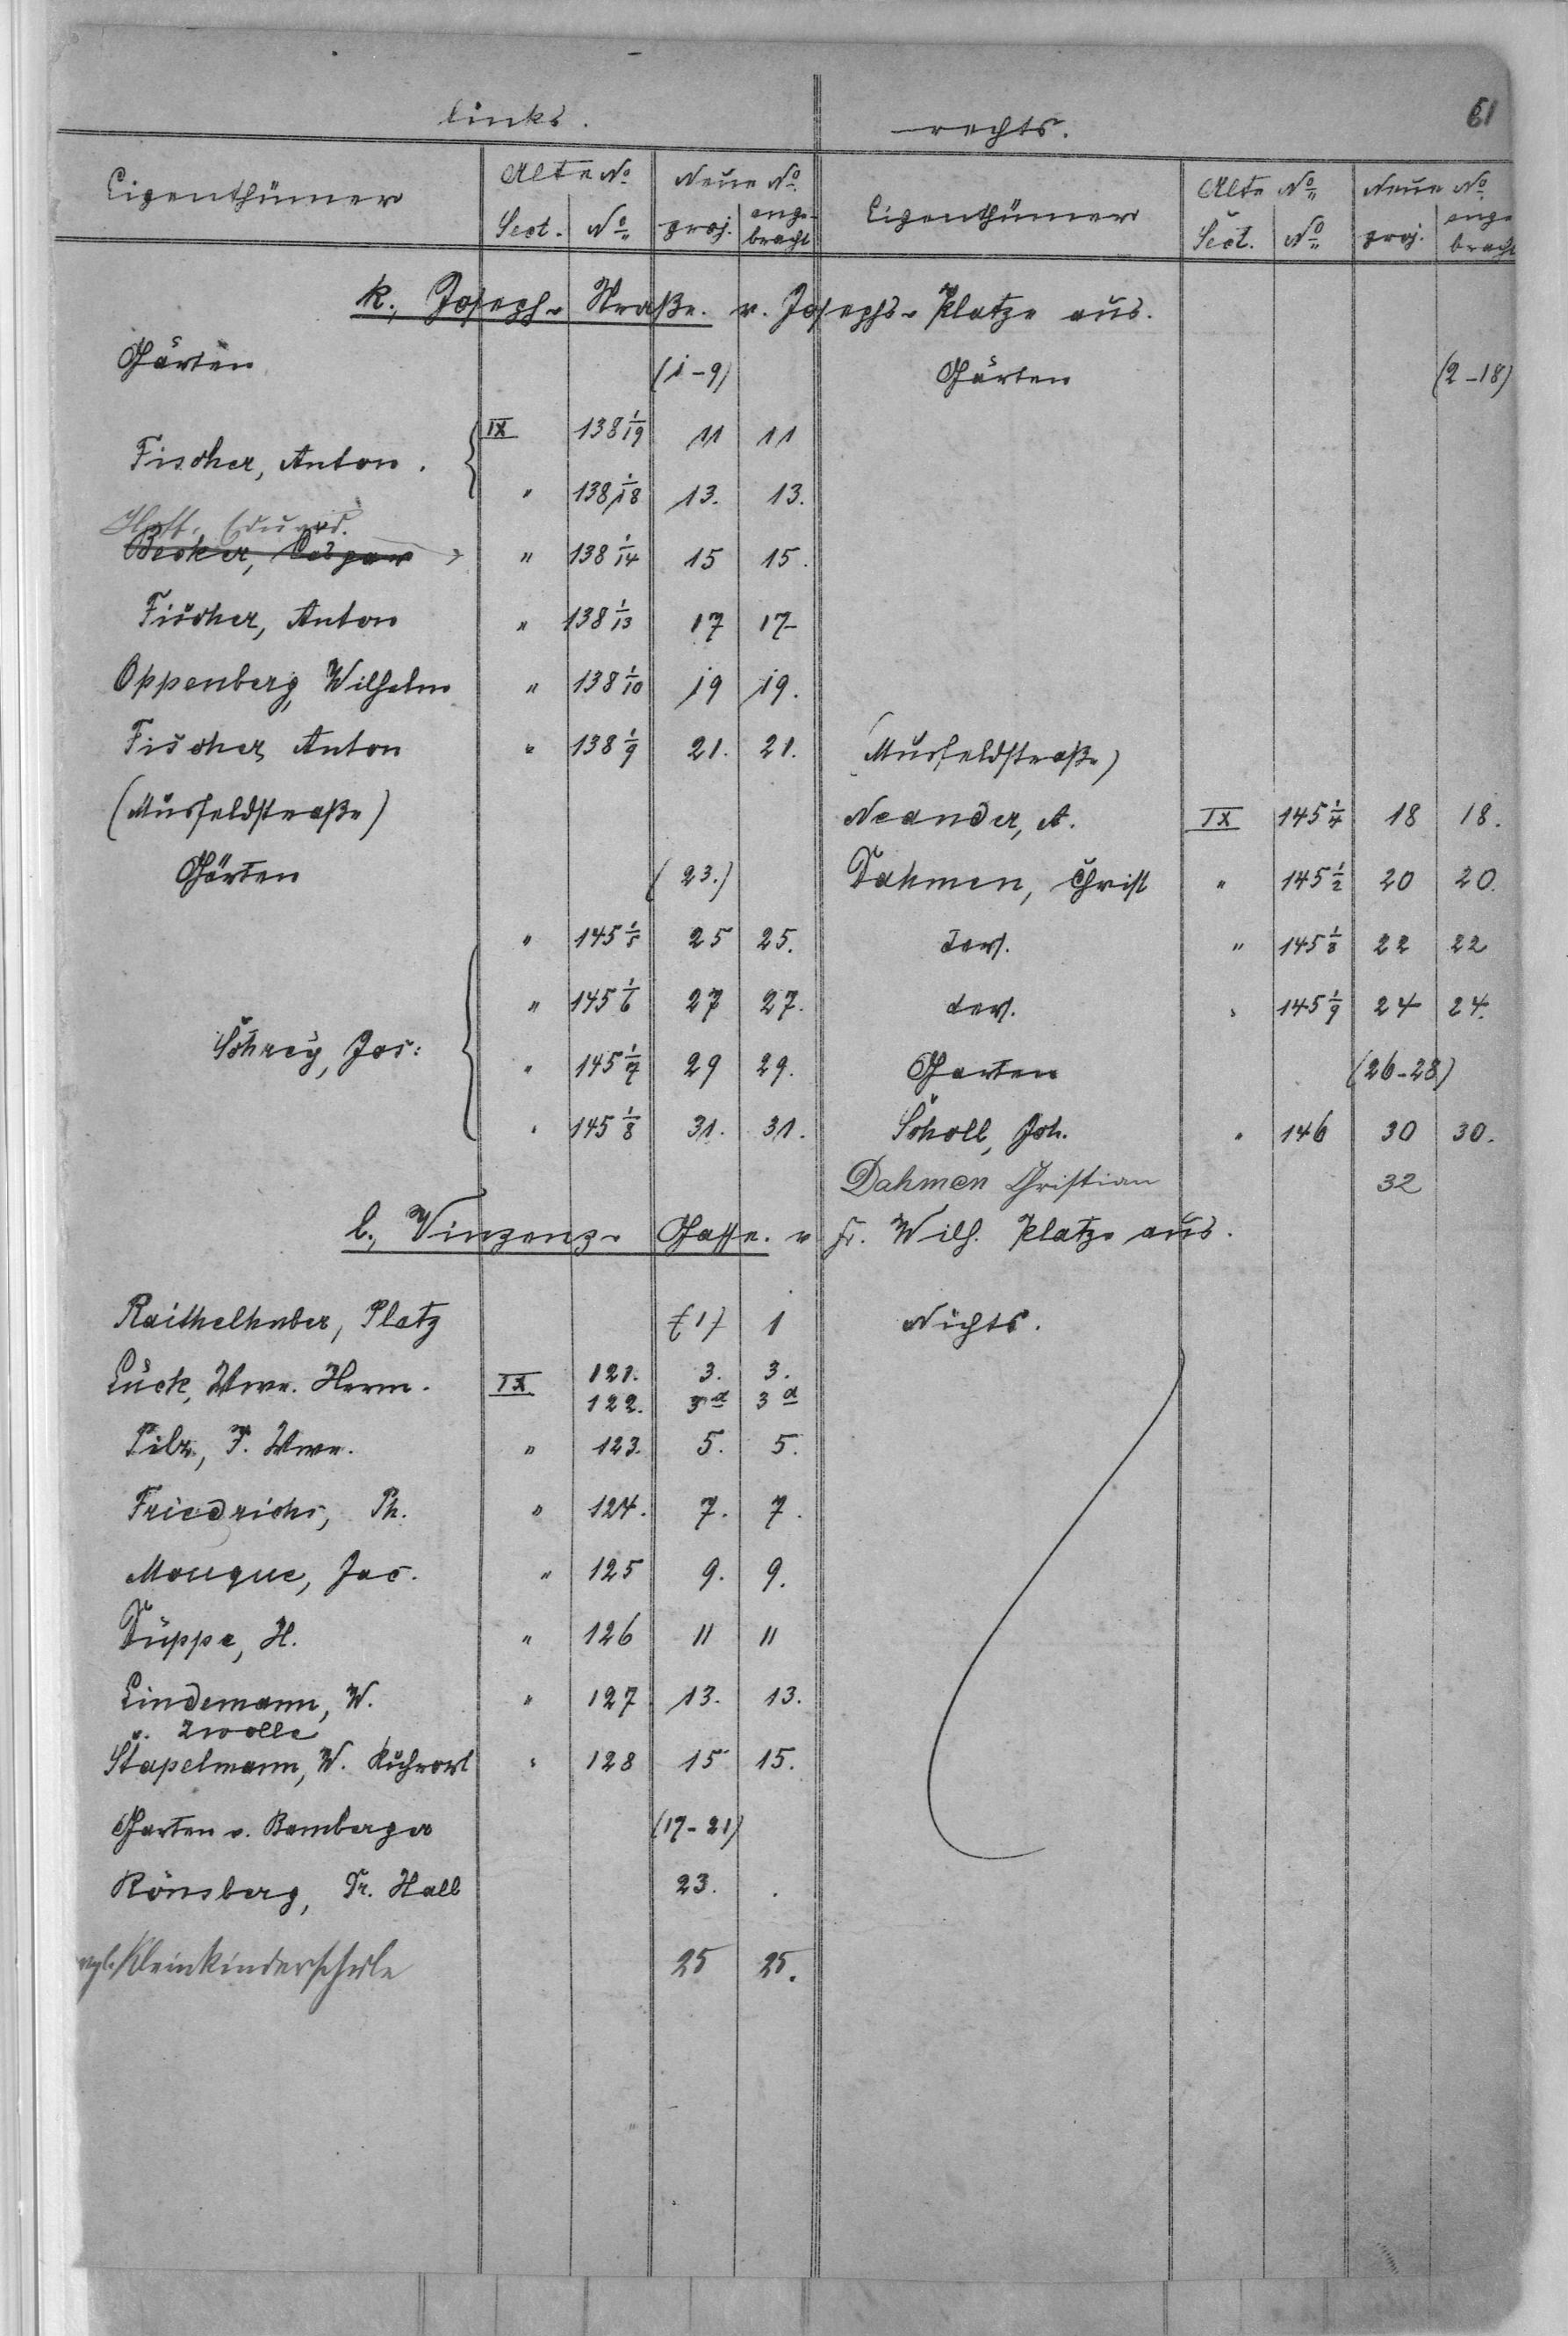 61
links.
rechts.
Eigenthümer | Alte No. Sect. | No. | Neue No. proj. | ange-bracht | Eigenthümer | Alte No. Sect. | No. | Neue No. proj. | ange-bracht
k., Joseph-Straße. v. Josephs-Platze aus.
Gärten (1-9) | Gärten (2-18)
Fischer, Anton. { IX 138 1/19 11 11
" 138 1/18 13. 13.
Hoff, Eduard.
Becker, Caspar " 138 1/14 15 15.
Fischer, Anton " 138 1/13 17 17
Oppenberg, Wilhelm " 138 1/10 19 19.
Fischer, Anton " 138 1/9 21. 21. | (Musfeldstraße)
(Musfeldstraße) | Neander, A. IX 145 1/4 18 18.
Gärten (23.) | Dahmen, Christ " 145 1/2 20 20.
" 145 1/5 25 25. | ders. " 145 1/8 22 22
" 145 1/6 27 27. | ders. " 145 1/9 24 24.
Schrey, Jos: { " 145 1/7 29 29. | Garten (26-28)
" 145 1/8 31. 31. | Scholl, Joh. " 146 30 30.
Dahmen Christian 32
l., Vinzenz-Gasse. v. Fr. Wilh. Platze aus.
Raithelhuber, Platz (1) 1 | Nichts.
Lück, Wwe. Herm. IX 121. 3. 3.
122. 3a 3a
Pilz, F. Wwe. " 123. 5. 5.
Friedrichs, Th. " 124. 7. 7.
Mouque, Jac. " 125 9. 9.
Düppe, H. " 126 11 11
Lindemann, W. " 127 13. 13.
v. Zwolle
Stapelmann, W. Ruhrort " 128 15 15.
Garten v. Bamberger (17-21)
Rönsberg, Dr. Hall 23. .
evgl. Kleinkinderschule 25 25.